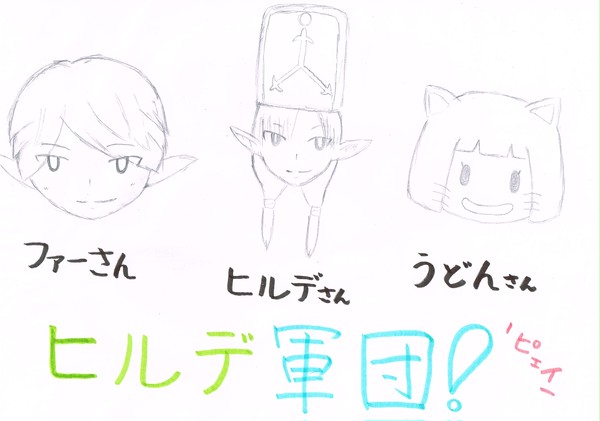 ファーさん
ヒルデさん
うどんさん
ヒルデ軍団!
ピェイー